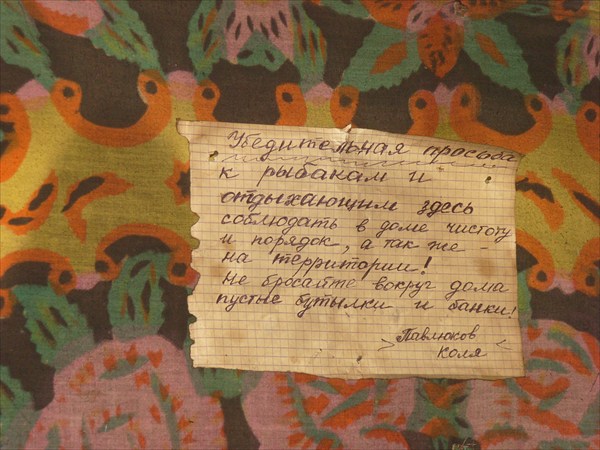 Убедительная просьба
к рыбакам и
отдыхающим здесь
соблюдать в доме чистоту
и порядок, а так же -
на территории!
Не бросайте вокруг дома
пустые бутылки и банки!
Павлюков
> Коля <